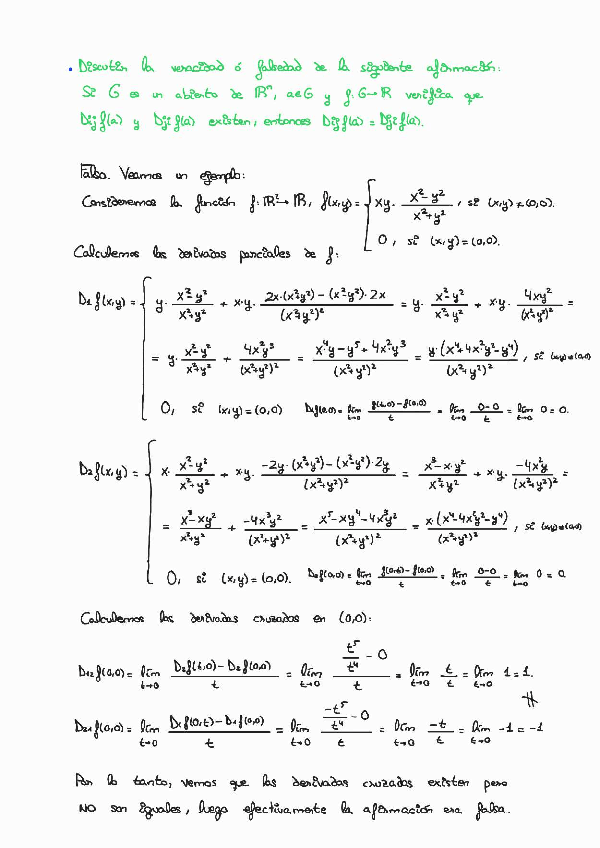 • Discutir la veracidad ó falsedad de la siguiente afirmación:
Si G es un abierto de ℝⁿ, a∈G y f: G→ℝ verifica que
Dijf(a) y Djif(a) existen, entonces Dijf(a) = Djif(a).
Falso. Veamos un ejemplo:
Consideremos la función f: ℝ²→ℝ, f(x,y) = { xy · (x²-y²)/(x²+y²), si (x,y)≠(0,0).
0, si (x,y)=(0,0).
Calculemos las derivadas parciales de f:
D₁f(x,y) = { y · (x²-y²)/(x²+y²) + x·y · (2x·(x²+y²) - (x²-y²)·2x)/(x²+y²)² = y · (x²-y²)/(x²+y²) + x·y · 4xy²/(x²+y²)² =
= y · (x²-y²)/(x²+y²) + 4x²y³/(x²+y²)² = (x⁴y - y⁵ + 4x²y³)/(x²+y²)² = y·(x⁴+4x²y²-y⁴)/(x²+y²)², si (x,y)≠(0,0)
0, si (x,y)=(0,0) D₁f(0,0) = lím t→0 (f(t,0) - f(0,0))/t = lím t→0 (0-0)/t = lím t→0 0 = 0.
D₂f(x,y) = { x · (x²-y²)/(x²+y²) + x·y · (-2y·(x²+y²) - (x²-y²)·2y)/(x²+y²)² = (x³-x·y²)/(x²+y²) + x·y · -4x²y/(x²+y²)² =
= (x³-xy²)/(x²+y²) + -4x³y²/(x²+y²)² = (x⁵-xy⁴-4x³y²)/(x²+y²)² = x·(x⁴-4x²y²-y⁴)/(x²+y²)², si (x,y)≠(0,0)
0, si (x,y)=(0,0). D₂f(0,0) = lím t→0 (f(0,t) - f(0,0))/t = lím t→0 (0-0)/t = lím t→0 0 = 0.
Calculemos las derivadas cruzadas en (0,0):
D₁₂f(0,0) = lím t→0 (D₂f(t,0) - D₂f(0,0))/t = lím t→0 (t⁵/t⁴ - 0)/t = lím t→0 t/t = lím t→0 1 = 1.
≠
D₂₁f(0,0) = lím t→0 (D₁f(0,t) - D₁f(0,0))/t = lím t→0 (-t⁵/t⁴ - 0)/t = lím t→0 -t/t = lím t→0 -1 = -1
Por lo tanto, vemos que las derivadas cruzadas existen pero
NO son iguales, luego efectivamente la afirmación era falsa.